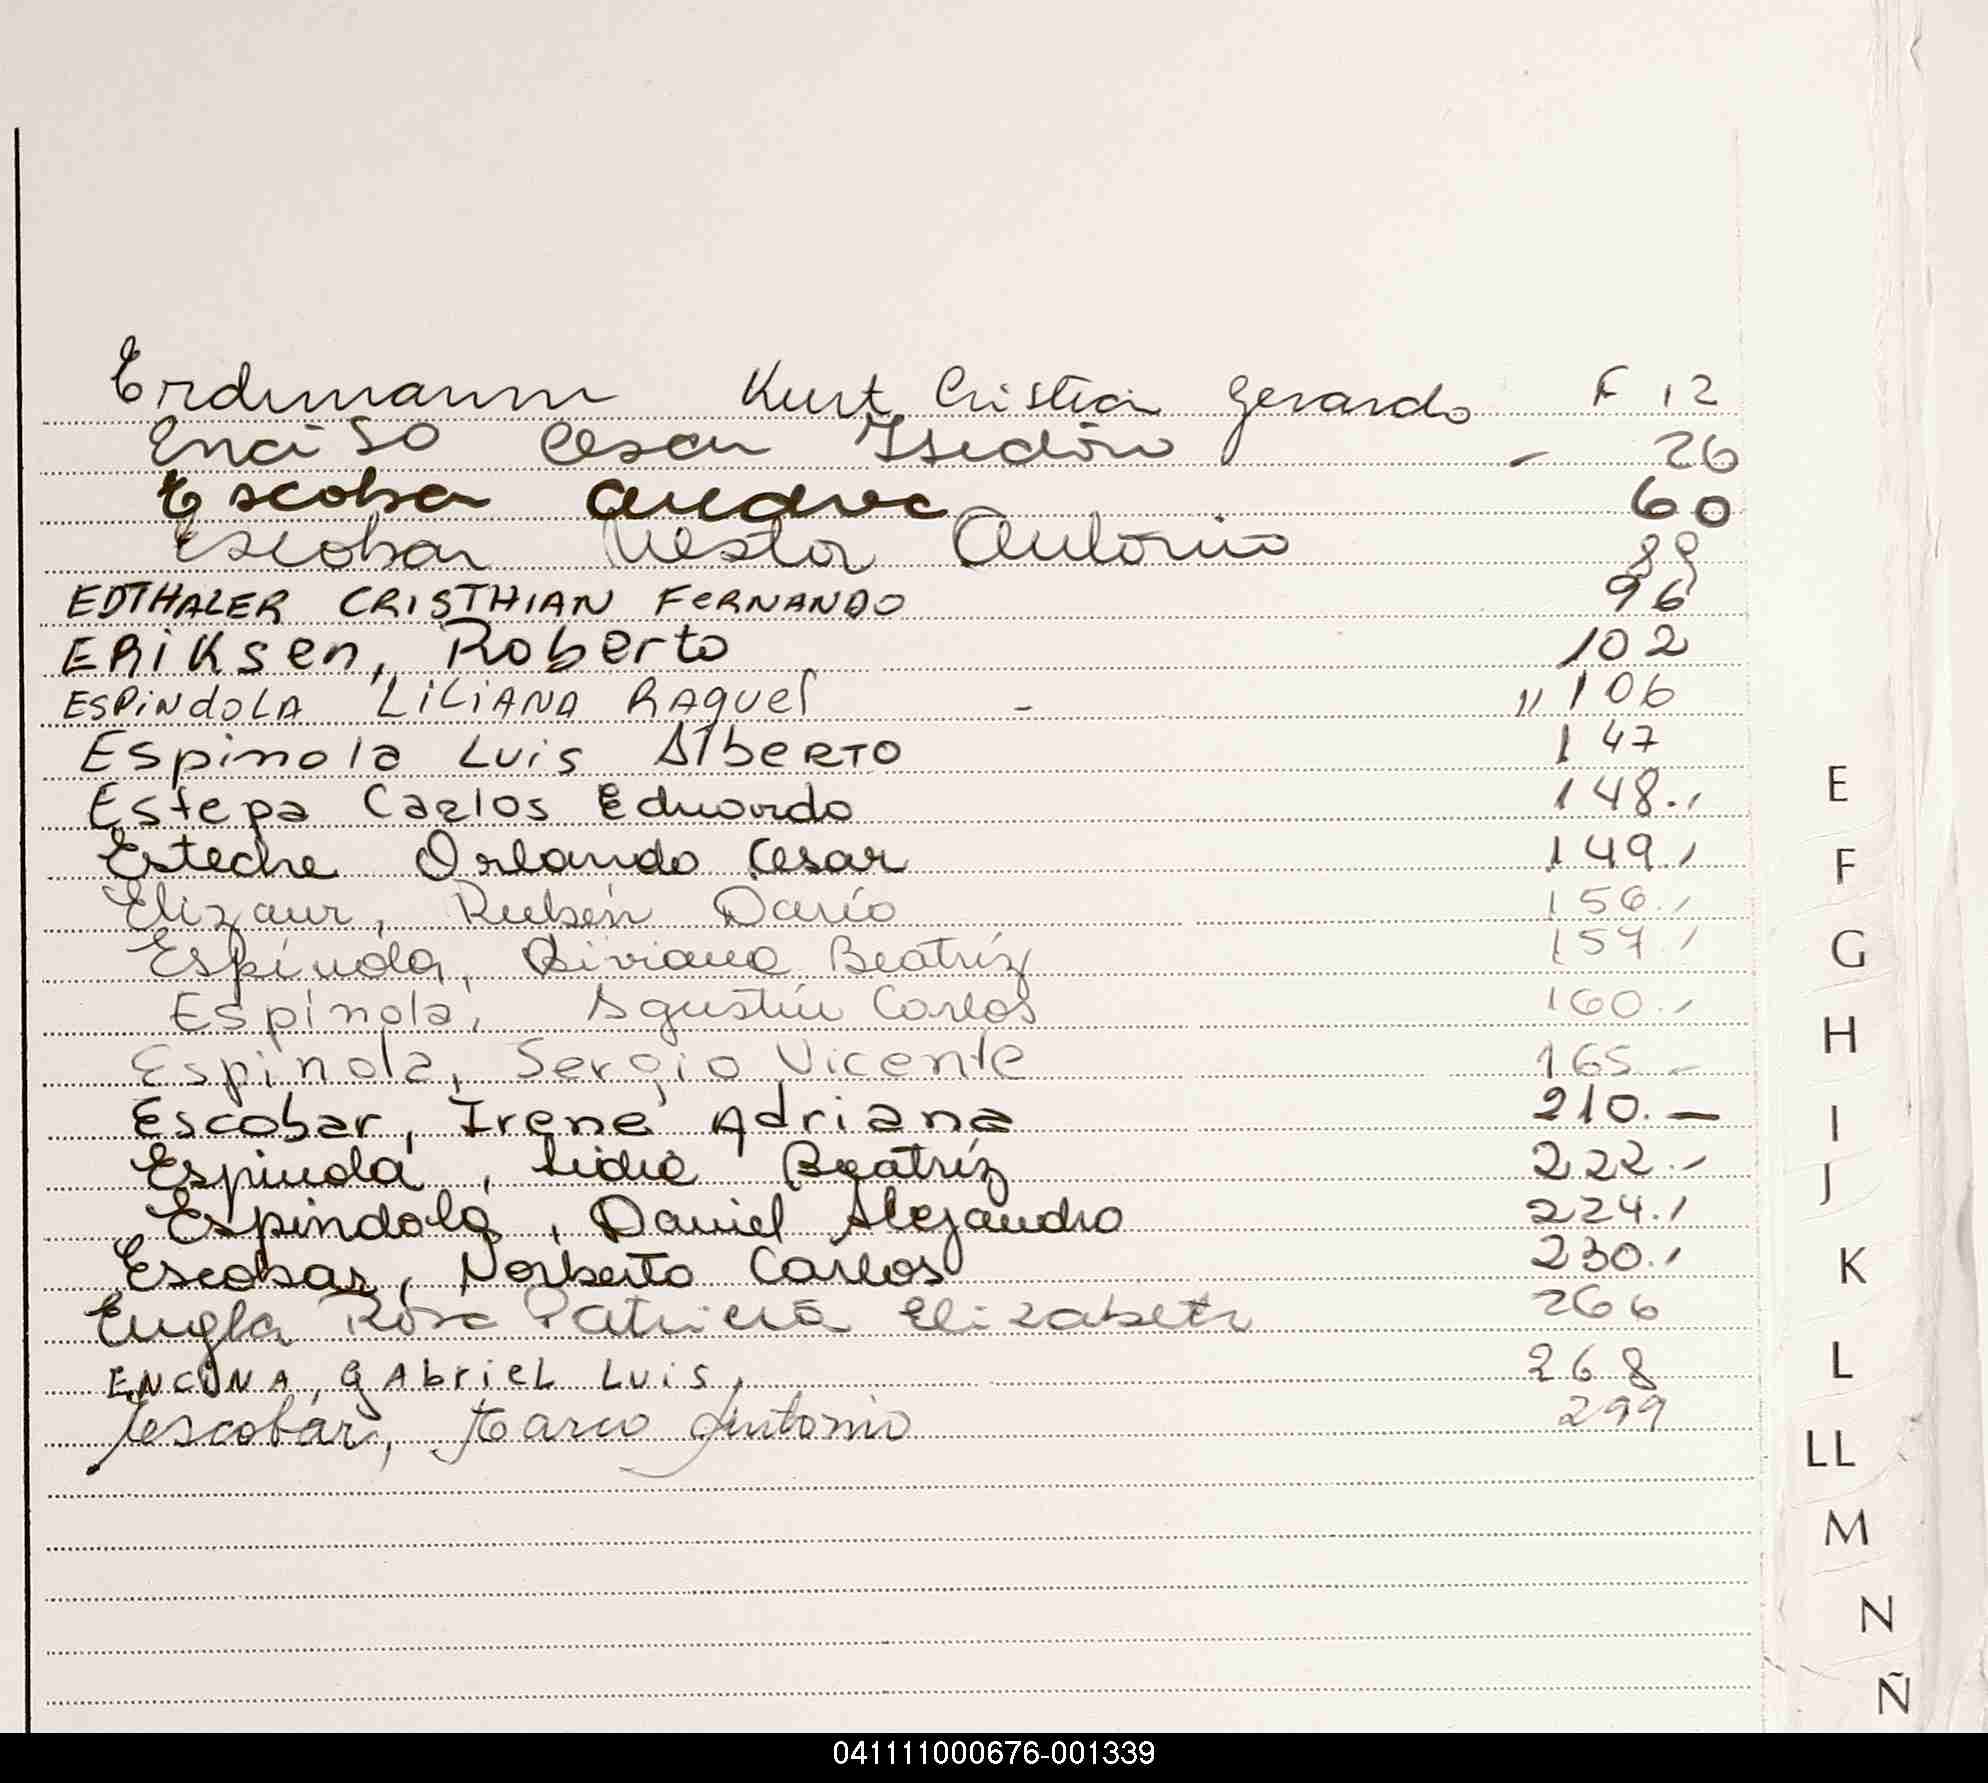 Erdmann Kurt Cristian Gerardo - F 12
Enciso Cesar Isidoro - 26
Escobar Andrea 60
Escobar Nestor Antonio 89
EDTHALER CRISTHIAN FERNANDO 96
ERiksen, Roberto 102
ESPiNdOLA LiLiANA RAquel - " 106
Espinola Luis AlbeRTO 147
Estepa Carlos Eduardo 148.-
Esteche Orlando Cesar 149.-
Elizaur, Rubén Darío 156.-
Espíndola, Viviana Beatríz 157.-
Espínola, Agustín Carlos 160.-
Espinola, Sergio Vicente 165 -
Escobar, Irene Adriana 210.-
Espindola, Lidia Beatríz 222.-
Espíndola, Daniel Alejandro 224.-
Escobar, Norberto Carlos 230.-
Rosa Patricia Elizabeth 266
ENCINA, GAbrieL Luis, 268
Escobar, Marco Antonio 299
E
F
G
H
I
J
K
L
LL
M
N
Ñ
041111000676-001339